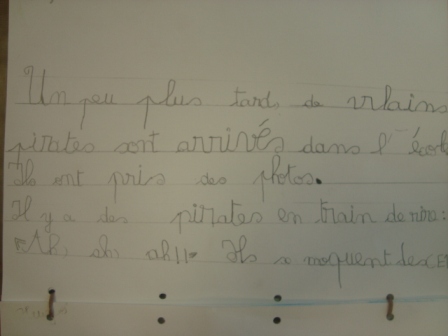 Un peu plus tard, de vrlains
pirates sont arrivés dans l'école
Ils ont pris des photos.
Il y a des pirates en train de rire :
"Ah, ah, ah!!" Ils se moquent des CE1